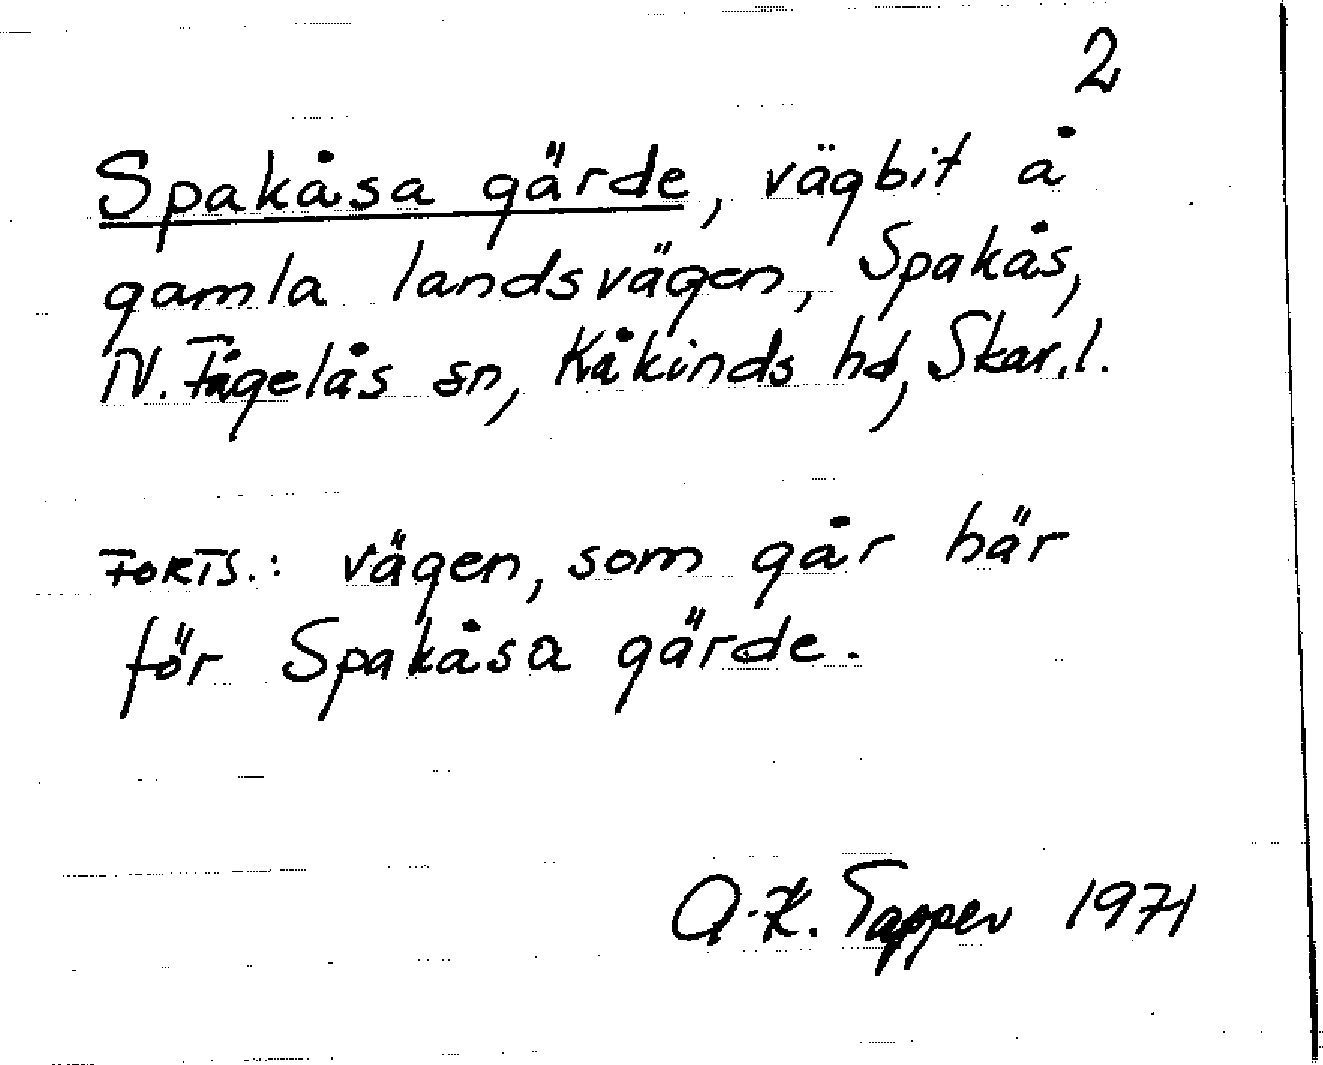 2
Spakåsa gärde, vägbit å
gamla landsvägen, Spakås,
N. Fågelås sn, Kåkinds hd, Skar.l.
FORTS.: vägen, som går här
för Spakåsa gärde.
A-K. Tapper 1971